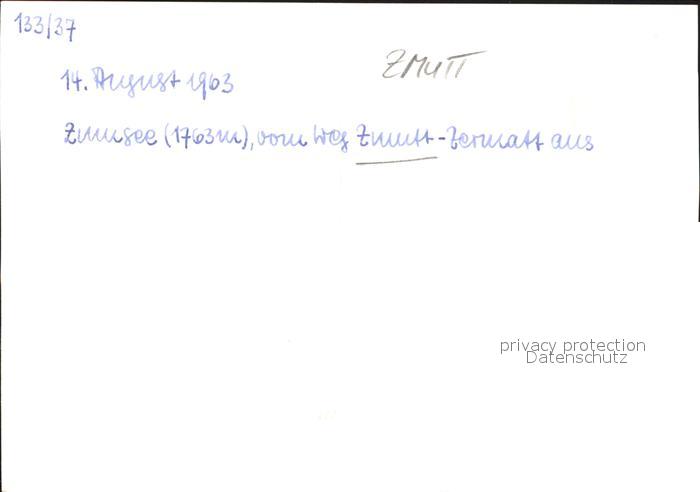 133/37
ZMUTT
14. August 1963
Zmusee (1763m), vom Weg Zmutt-Zermatt aus
privacy protection
Datenschutz